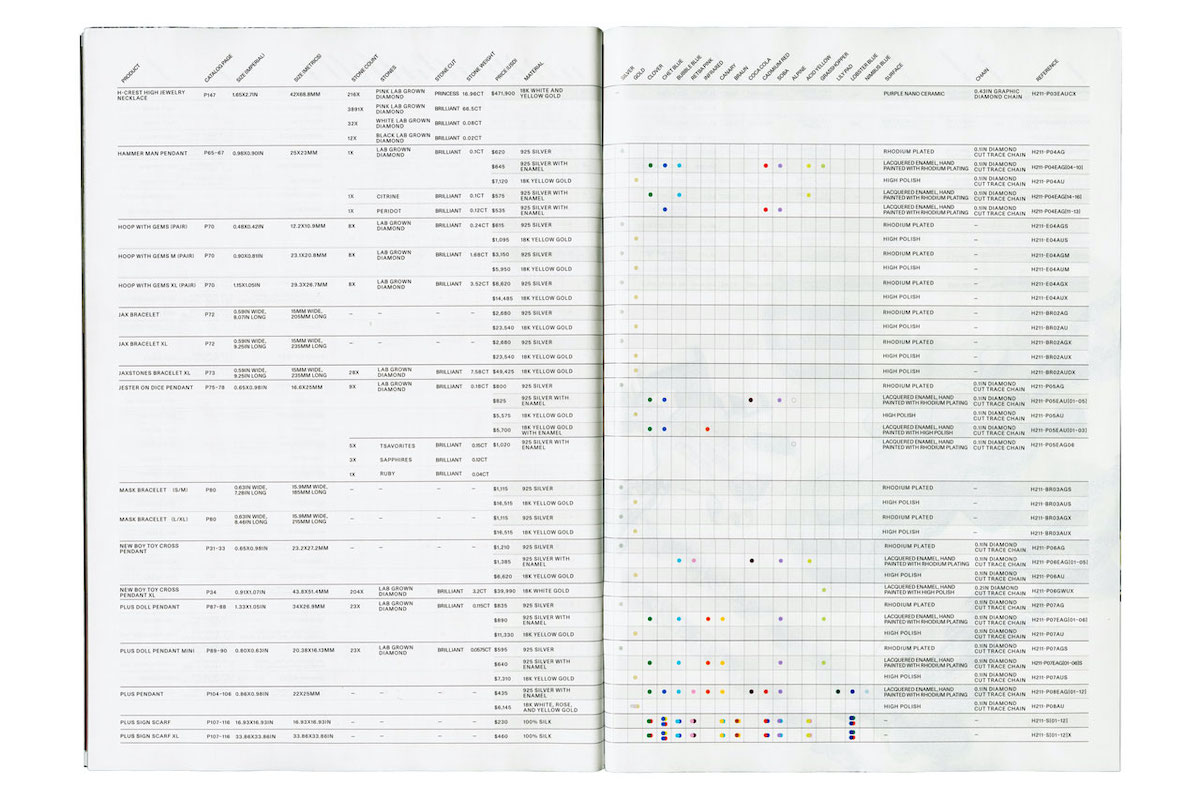 PRODUCT CATALOG PAGE SIZE (IMPERIAL) SIZE (METRICS) STONE COUNT STONES STONE CUT STONE WEIGHT PRICE (USD) MATERIAL
H-CREST HIGH JEWELRY NECKLACE P147 1.65X2.7IN 42X68.8MM 216X PINK LAB GROWN DIAMOND PRINCESS 16.96CT $471,900 18K WHITE AND YELLOW GOLD
3891X PINK LAB GROWN DIAMOND BRILLIANT 66.5CT
32X WHITE LAB GROWN DIAMOND BRILLIANT 0.08CT
12X BLACK LAB GROWN DIAMOND BRILLIANT 0.02CT
HAMMER MAN PENDANT P65-67 0.98X0.90IN 25X23MM 1X LAB GROWN DIAMOND BRILLIANT 0.1CT $620 925 SILVER
$645 925 SILVER WITH ENAMEL
$7,120 18K YELLOW GOLD
1X CITRINE BRILLIANT 0.1CT $575 925 SILVER WITH ENAMEL
1X PERIDOT BRILLIANT 0.12CT $535 925 SILVER WITH ENAMEL
HOOP WITH GEMS (PAIR) P70 0.48X0.42IN 12.2X10.9MM 8X LAB GROWN DIAMOND BRILLIANT 0.24CT $615 925 SILVER
$1,095 18K YELLOW GOLD
HOOP WITH GEMS M (PAIR) P70 0.90X0.81IN 23.1X20.8MM 8X LAB GROWN DIAMOND BRILLIANT 1.68CT $3,150 925 SILVER
$5,950 18K YELLOW GOLD
HOOP WITH GEMS XL (PAIR) P70 1.15X1.05IN 29.3X26.7MM 8X LAB GROWN DIAMOND BRILLIANT 3.52CT $6,820 925 SILVER
$14,485 18K YELLOW GOLD
JAX BRACELET P72 0.59IN WIDE, 8.07IN LONG 15MM WIDE, 205MM LONG – – – – $2,680 925 SILVER
$23,540 18K YELLOW GOLD
JAX BRACELET XL P72 0.59IN WIDE, 9.25IN LONG 15MM WIDE, 235MM LONG – – – – $2,680 925 SILVER
$23,540 18K YELLOW GOLD
JAXSTONES BRACELET XL P73 0.59IN WIDE, 9.25IN LONG 15MM WIDE, 235MM LONG 28X LAB GROWN DIAMOND BRILLIANT 7.58CT $49,425 18K YELLOW GOLD
JESTER ON DICE PENDANT P75-79 0.65X0.98IN 16.6X25MM 9X LAB GROWN DIAMOND BRILLIANT 0.18CT $600 925 SILVER
$825 925 SILVER WITH ENAMEL
$5,575 18K YELLOW GOLD
$5,700 18K YELLOW GOLD WITH ENAMEL
5X TSAVORITES BRILLIANT 0.15CT $1,020 925 SILVER WITH ENAMEL
3X SAPPHIRES BRILLIANT 0.10CT
1X RUBY BRILLIANT 0.04CT
MASK BRACELET (S/M) P80 0.63IN WIDE, 7.28IN LONG 15.9MM WIDE, 185MM LONG – – – – $1,115 925 SILVER
$16,515 18K YELLOW GOLD
MASK BRACELET (L/XL) P80 0.63IN WIDE, 8.46IN LONG 15.9MM WIDE, 215MM LONG – – – – $1,115 925 SILVER
$16,515 18K YELLOW GOLD
NEW BOY TOY CROSS PENDANT P31-33 0.65X0.98IN 23.2X27.2MM – – – – $1,210 925 SILVER
$1,385 925 SILVER WITH ENAMEL
$6,620 18K YELLOW GOLD
NEW BOY TOY CROSS PENDANT XL P34 0.91X1.07IN 43.8X51.4MM 204X LAB GROWN DIAMOND BRILLIANT 3.2CT $39,990 18K WHITE GOLD
PLUS DOLL PENDANT P87-88 1.33X1.05IN 34X26.9MM 23X LAB GROWN DIAMOND BRILLIANT 0.115CT $835 925 SILVER
$890 925 SILVER WITH ENAMEL
$11,330 18K YELLOW GOLD
PLUS DOLL PENDANT MINI P89-90 0.80X0.63IN 20.38X16.13MM 23X LAB GROWN DIAMOND BRILLIANT 0.0575CT $595 925 SILVER
$640 925 SILVER WITH ENAMEL
$7,310 18K YELLOW GOLD
PLUS PENDANT P104-106 0.86X0.98IN 22X25MM – – – – $435 925 SILVER WITH ENAMEL
$6,145 18K WHITE, ROSE, AND YELLOW GOLD
PLUS SIGN SCARF P107-116 16.93X16.93IN 16.93X16.93IN – – – – $230 100% SILK
PLUS SIGN SCARF XL P107-116 33.86X33.86IN 33.86X33.86IN – – – – $460 100% SILK
SILVER GOLD CLOVER CHET BLUE BUBBLE BLUE RETBA PINK INFRARED CANARY BRAUN COCA COLA CADMIUM RED SOBA ALPINE ACID YELLOW GRASSHOPPER LILY PAD LOBSTER BLUE NIMBUS BLUE SURFACE CHAIN REFERENCE
– PURPLE NANO CERAMIC 0.43IN GRAPHIC DIAMOND CHAIN H211-P03EAUCX
RHODIUM PLATED 0.1IN DIAMOND CUT TRACE CHAIN H211-P04AG
LACQUERED ENAMEL, HAND PAINTED WITH RHODIUM PLATING 0.1IN DIAMOND CUT TRACE CHAIN H211-P04EAG[04-10]
HIGH POLISH 0.1IN DIAMOND CUT TRACE CHAIN H211-P04AU
LACQUERED ENAMEL, HAND PAINTED WITH RHODIUM PLATING 0.1IN DIAMOND CUT TRACE CHAIN H211-P04EAG[14-16]
LACQUERED ENAMEL, HAND PAINTED WITH RHODIUM PLATING 0.1IN DIAMOND CUT TRACE CHAIN H211-P04EAG[11-13]
RHODIUM PLATED – H211-E04AGS
HIGH POLISH – H211-E04AUS
RHODIUM PLATED – H211-E04AGM
HIGH POLISH – H211-E04AUM
RHODIUM PLATED – H211-E04AGX
HIGH POLISH – H211-E04AUX
RHODIUM PLATED – H211-BR02AG
HIGH POLISH – H211-BR02AU
RHODIUM PLATED – H211-BR02AGX
HIGH POLISH – H211-BR02AUX
HIGH POLISH – H211-BR02AUDX
RHODIUM PLATED 0.1IN DIAMOND CUT TRACE CHAIN H211-P05AG
LACQUERED ENAMEL, HAND PAINTED WITH RHODIUM PLATING 0.1IN DIAMOND CUT TRACE CHAIN H211-P05EAU[01-05]
HIGH POLISH 0.1IN DIAMOND CUT TRACE CHAIN H211-P05AU
LACQUERED ENAMEL, HAND PAINTED WITH HIGH POLISH 0.1IN DIAMOND CUT TRACE CHAIN H211-P05EAU[01-03]
LACQUERED ENAMEL, HAND PAINTED WITH RHODIUM PLATING 0.1IN DIAMOND CUT TRACE CHAIN H211-P05EAG06
RHODIUM PLATED – H211-BR03AGS
HIGH POLISH – H211-BR03AUS
RHODIUM PLATED – H211-BR03AGX
HIGH POLISH – H211-BR03AUX
RHODIUM PLATED 0.1IN DIAMOND CUT TRACE CHAIN H211-P06AG
LACQUERED ENAMEL, HAND PAINTED WITH RHODIUM PLATING 0.1IN DIAMOND CUT TRACE CHAIN H211-P06EAG[01-05]
HIGH POLISH 0.1IN DIAMOND CUT TRACE CHAIN H211-P06AU
LACQUERED ENAMEL, HAND PAINTED WITH HIGH POLISH 0.2IN DIAMOND CUT TRACE CHAIN H211-P06GWUX
RHODIUM PLATED 0.1IN DIAMOND CUT TRACE CHAIN H211-P07AG
LACQUERED ENAMEL, HAND PAINTED WITH RHODIUM PLATING 0.1IN DIAMOND CUT TRACE CHAIN H211-P07EAG[01-06]
HIGH POLISH 0.1IN DIAMOND CUT TRACE CHAIN H211-P07AU
RHODIUM PLATED 0.1IN DIAMOND CUT TRACE CHAIN H211-P07AGS
LACQUERED ENAMEL, HAND PAINTED WITH RHODIUM PLATING 0.1IN DIAMOND CUT TRACE CHAIN H211-P07EAG[01-06]S
HIGH POLISH 0.1IN DIAMOND CUT TRACE CHAIN H211-P07AUS
LACQUERED ENAMEL, HAND PAINTED WITH RHODIUM PLATING 0.1IN DIAMOND CUT TRACE CHAIN H211-P08EAG[01-12]
HIGH POLISH 0.1IN DIAMOND CUT TRACE CHAIN H211-P08AU
– – H211-S[01-12]
– – H211-S[01-12]X